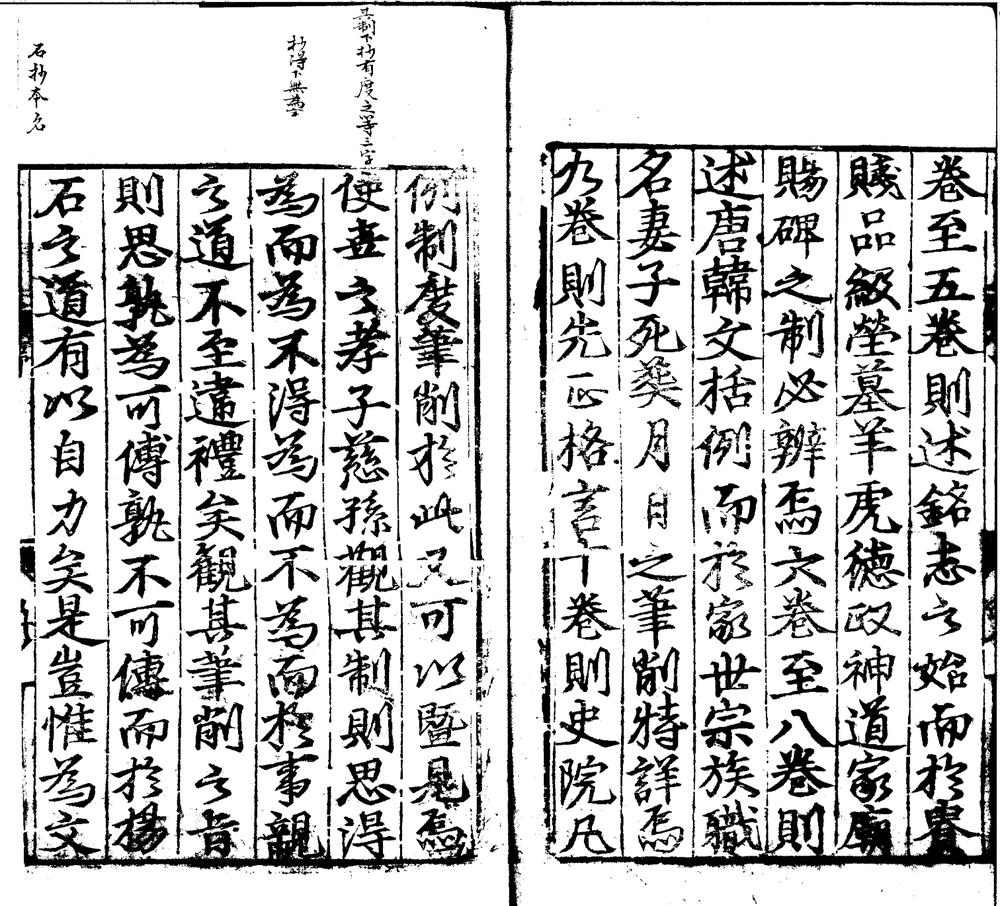 卷至五卷則述銘志之始而於貴
賤品級塋墓羊虎德政神道家廟
賜碑之制必辨焉六卷至八卷則
述唐韓文括例而於家世宗族職
名妻子死葬月日之筆削特詳焉
九卷則先正格言十卷則史院凡
例制度筆削於此又可以暨見焉
使世之孝子慈孫觀其制則思得
為而為不得為而不為而於事親
之道不至違禮矣觀其筆削之旨
則思孰為可傳孰不可傳而於揚
石之道有以自力矣是豈惟為文
其制下抄有度之等三字
抄得下無為字
石抄本名